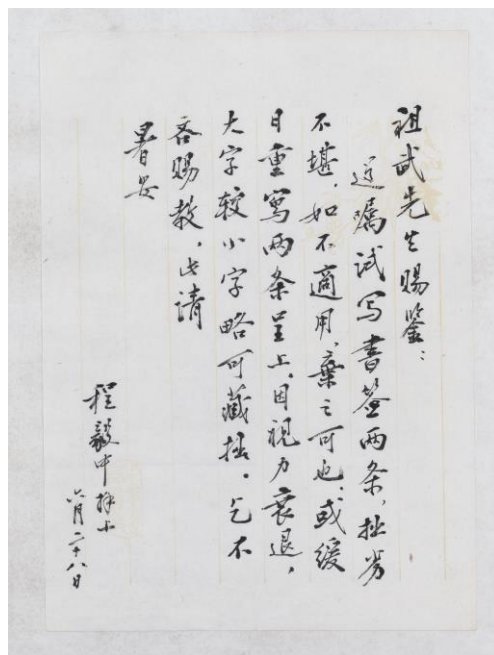 祖武先生赐鉴：
遵嘱试写书签两条，拙劣
不堪，如不适用，弃之可也，或缓
日重写两条呈上。因视力衰退，
大字较小字略可藏拙。乞不
吝赐教，此请
暑安
程毅中拜上
六月二十八日